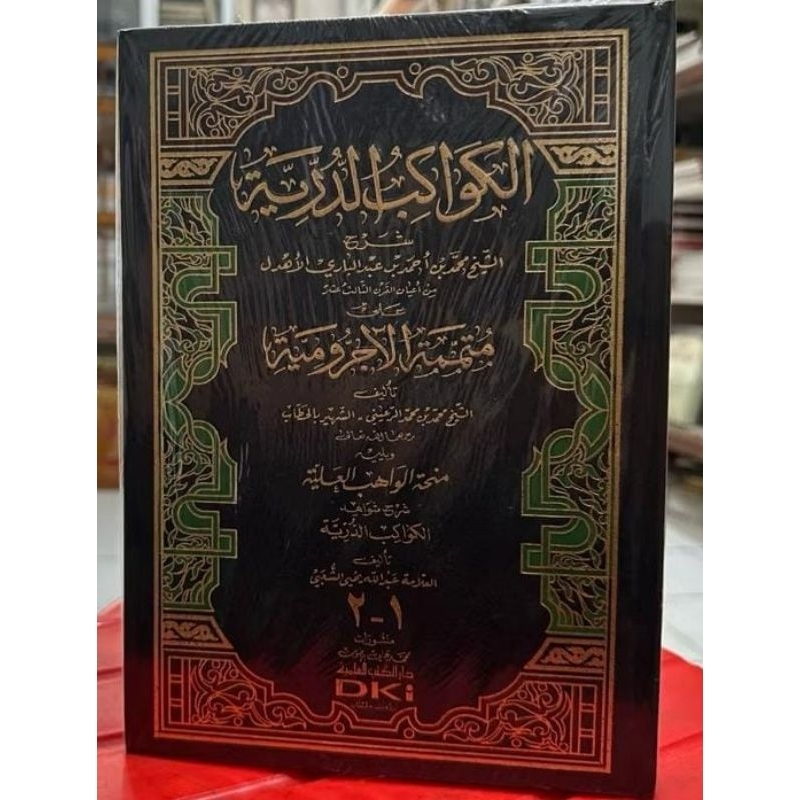 الكَوَاكِبُ الدُّرِّيَّة
شَرْح
الشّيخ محمّد بن أحمد بن عبد الباري الأهدل
من أعيان القرن الثالث عشر
على
مُتمِّمَة الآجُرُّومِيَّة
تأليف
الشّيخ محمّد بن محمّد الرعيني - الشهير بالحطّاب
رحمهما الله تعالى
ويليه
منحة الواهب العليّة
شرح شواهد
الكواكب الدُّرِّيَّة
تأليف
العلّامة عبد الله يحيى الشُّعَبيّ
١-٢
منشورات
محمد علي بيضون
دار الكتب العلمية
DKi